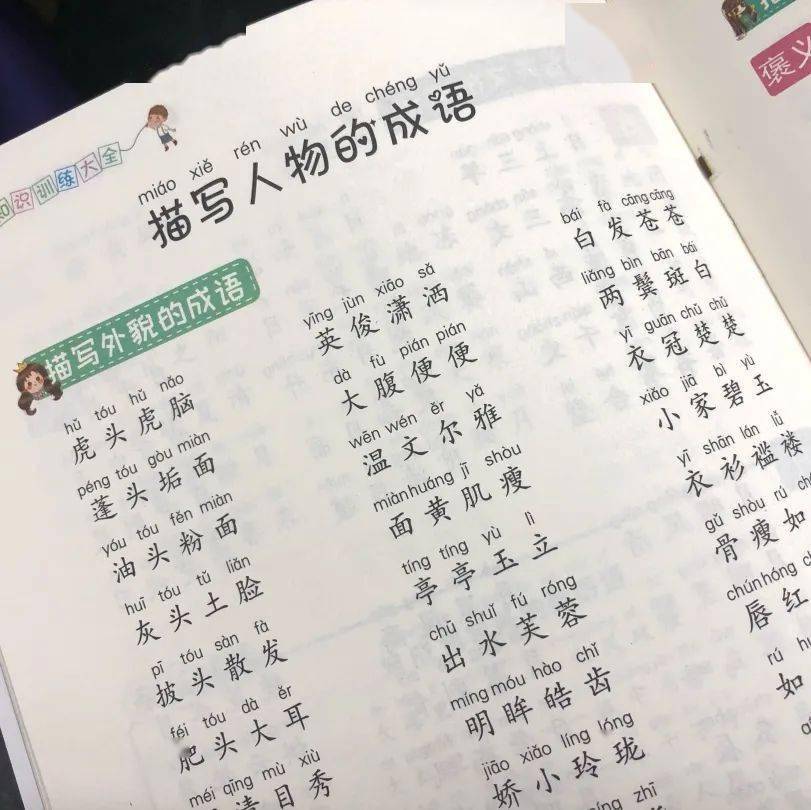 识训练大全
miáo xiě rén wù de chéng yǔ
描写人物的成语
描写外貌的成语
hǔ tóu hǔ nǎo
虎头虎脑
péng tóu gòu miàn
蓬头垢面
yóu tóu fěn miàn
油头粉面
huī tóu tǔ liǎn
灰头土脸
pī tóu sàn fà
披头散发
féi tóu dà ěr
肥头大耳
méi qīng mù xiù
清目秀
yīng jùn xiāo sǎ
英俊潇洒
dà fù pián pián
大腹便便
wēn wén ěr yǎ
温文尔雅
miàn huáng jī shòu
面黄肌瘦
tíng tíng yù lì
亭亭玉立
chū shuǐ fú róng
出水芙蓉
míng móu hào chǐ
明眸皓齿
jiāo xiǎo líng lóng
娇小玲珑
zhī
bái fà cāng cāng
白发苍苍
liǎng bìn bān bái
两鬓斑白
yī guān chǔ chǔ
衣冠楚楚
xiǎo jiā bì yù
小家碧玉
yī shān lán lǚ
衣衫褴褛
gǔ shòu rú
骨瘦如
chún hóng
唇红
rú
如
褒义